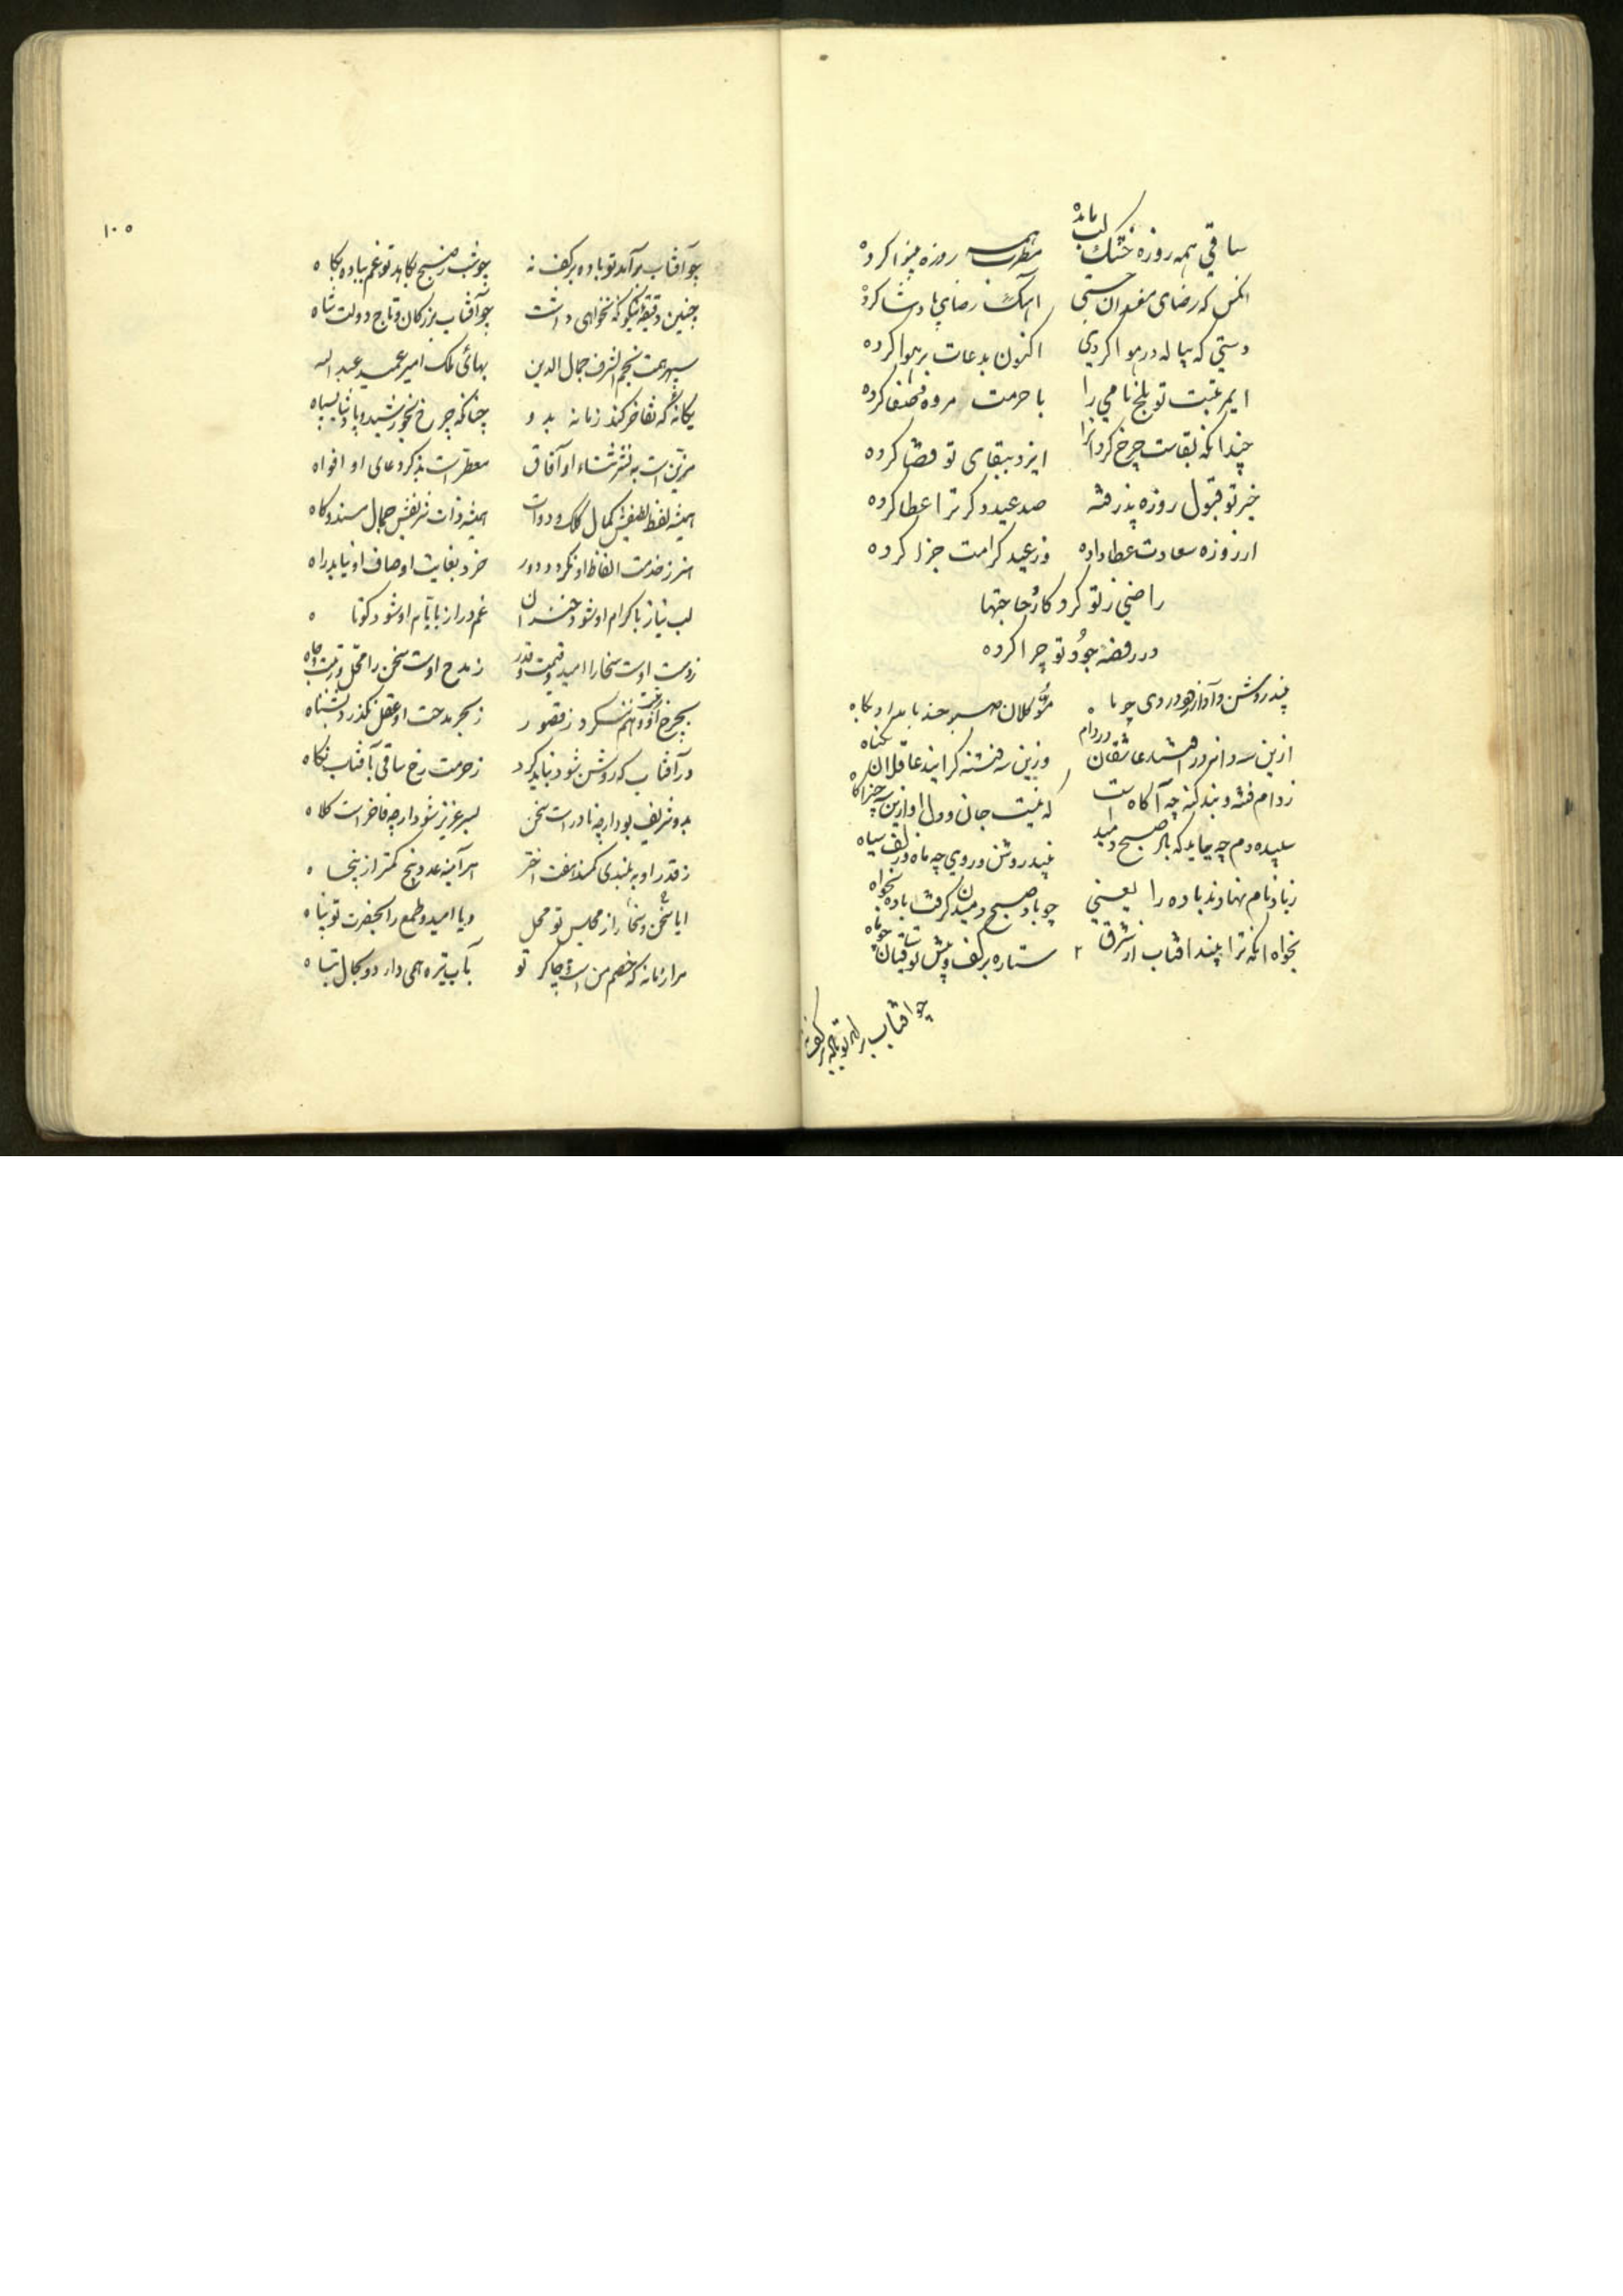 ساقی همه روزه خشک لب مانده مطرب همه روزه بینوا کرده
انکس که رضای مفسدان جستی اهنگ رضای پادشا کرده
دستی که پیاله در هوا کردی اکنون بدعات بر هوا کرده
با حرمت
چندانکه بقاست چرخ کردانرا ایزد ببقای تو قضا کرده
خیر تو قبول روزه پذرفته صد عید دکر ترا عطا کرده
از روزه سعادتت عطا داده وز عید کرامتت جزا کرده
راضی ز تو کردکار حاجتها
در روضه جود تو چرا کرده
ازین سه دانه در عاشقان وزین سه فتنه عاقلان
ز دام فتنه و بند کنه چه آکاه است که نیست جان و دل او ازین سه چیز اکاه
سپیده دم چه که باد صبح دمید نبید روشن و روی چو ماه و زلف سیاه
زیاد نام نهادند باده را یعنی چو باد صبح دمیدن کرفت باده بخواه
بخواه انکه ترا بیند افتاب از شرق ستاره بر کف و پیش تو ساقیان چو ماه
چو افتاب براید تو باده بر کف نه
۱۰۵
چو آفتاب برآید تو باده بر کف نه چو شب ز صبح بکاهد تو غم بباده بکاه
چنین دقیقه نیکو نکه نخواهی داشت چو آفتاب بزرکان و تاج دولت شاه
سپهر همت نجم الشرف جمال الدین بهائی ملک امیر عمید عبد الله
یکانه که تفاخر کند زمانه بدو چنانکه چرخ بخورشید و پادشا بسپاه
مزین است به نشر ثناء او آفاق معطر است بذکر دعای او افواه
همیشه لفظ لطیفش کمال کلک و دوات همیشه ذات شریفش جمال مسند و کاه
هنر ز خدمت الفاظ او نکردد دور خرد بغایت اوصاف او نیابد راه
لب نیاز باکرام او شود خندان غم دراز بایام او شود کوتاه
ز دست اوست سخا را امید و قیمت و قدر ز مدح اوست سخن را محل و رتبت و جاه
بچرخ رفعت او وهم ننکرد ز قصور ز بحر مدحت او عقل نکذرد بشناه
در آفتاب که روشن شود نباید کرد ز حرمت رخ ساقی بآفتاب نکاه
بدو شریف بود ار چه نادر است سخن بسر عزیز شود ار چه فاخر است کلاه
ز قدر او به بلندی کمند هفت اختر هر آینه عدد پنج کمتر از پنجاه
ایا سخن و سخا را ز مجلس تو محل و یا امید و طمع را بحضرت تو پناه
مرا زمانه که خصم من است و چاکر تو بآب تیره همی دارد و بحال تباه